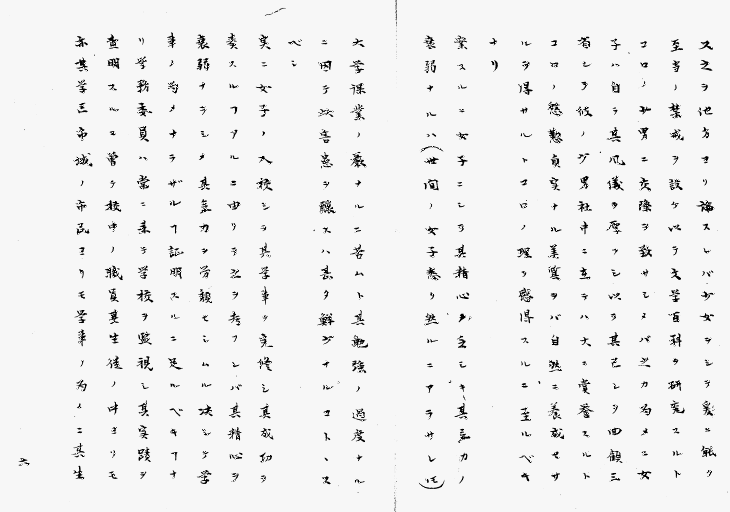 スヲ他方ヨリ論スレバ少女ヲシテ爰ニ能ク
至当ノ禁戒ヲ設ケ以テ文学百科ヲ研究スルト
コロノ少男ニ交際ヲ致サシメバ之カ為メニ女
子ハ自ラ其風儀ヲ厚フシ以テ其己レヲ回顧三
省シテ彼ノ少男社中ニ立テハ大ニ賞誉スルト
コロノ慇懃貞実ナル美質ヲバ自然ニ養成セサ
ルヲ得サルトコロノ理ヲ感得スルニ至ルベキ
ナリ
業スルニ女子ニシテ其精心乏シキ其気力ノ
衰弱ナルハ(世間ノ女子悉ク然ルニアラサレ𪜈)
大学課業ノ厳ナルニ苦ムト其勉強ノ過度ナル
ニ因テ以害患ヲ醸スハ甚タ鮮少ナルコトヽス
ベシ
実ニ女子ノ大校シテ其学事ヲ完修シ其成功ヲ
奏スルフアルニ由リテ之ヲ考フレバ其精心ヲ
衰弱ナラシメ其気力ヲ労頽セシムル決シテ学
事ノ為メナラザルヿ証明スルニ足ルベキヿナ
リ学務委員ハ常ニ来テ学校ヲ監視シ其実蹟ヲ
査明スルニ曽テ校中ノ職員其生徒ノ中ヨリモ
亦其学区市城ノ市民ヨリモ学事ノ為メニ其生
六